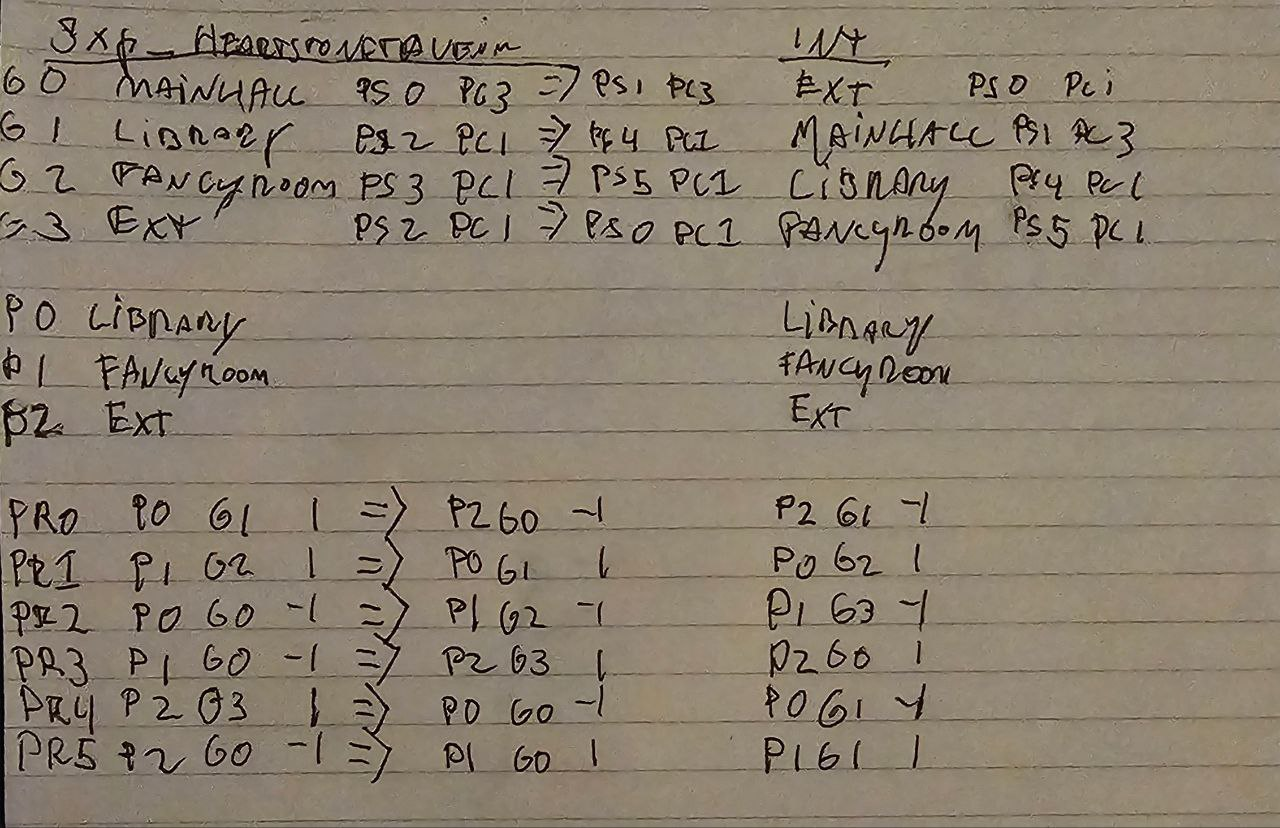 HEARTSTONETAVERN INT
G0 MAINHALL PS0 PC3 => PS1 PC3 EXT PS0 PC1
G1 LiBRARY PS2 PC1 => PS4 PC1 MAINHALL PS1 PC3
G2 FANCYROOM PS3 PC1 => PS5 PC1 LIBRARY PS4 PC1
G3 EXT PS2 PC1 => PS0 PC1 FANCYROOM PS5 PC1
P0 LiBRARY LiBRARY
P1 FANCYROOM FANCYROOM
P2 EXT EXT
PR0 P0 G1 1 => P2 G0 -1 P2 G1 -1
PR1 P1 G2 1 => P0 G1 1 P0 G2 1
PR2 P0 G0 -1 => P1 G2 -1 P1 G3 -1
PR3 P1 G0 -1 => P2 G3 1 P2 G0 1
PR4 P2 G3 1 => P0 G0 -1 P0 G1 -1
PR5 P2 G0 -1 => P1 G0 1 P1 G1 1